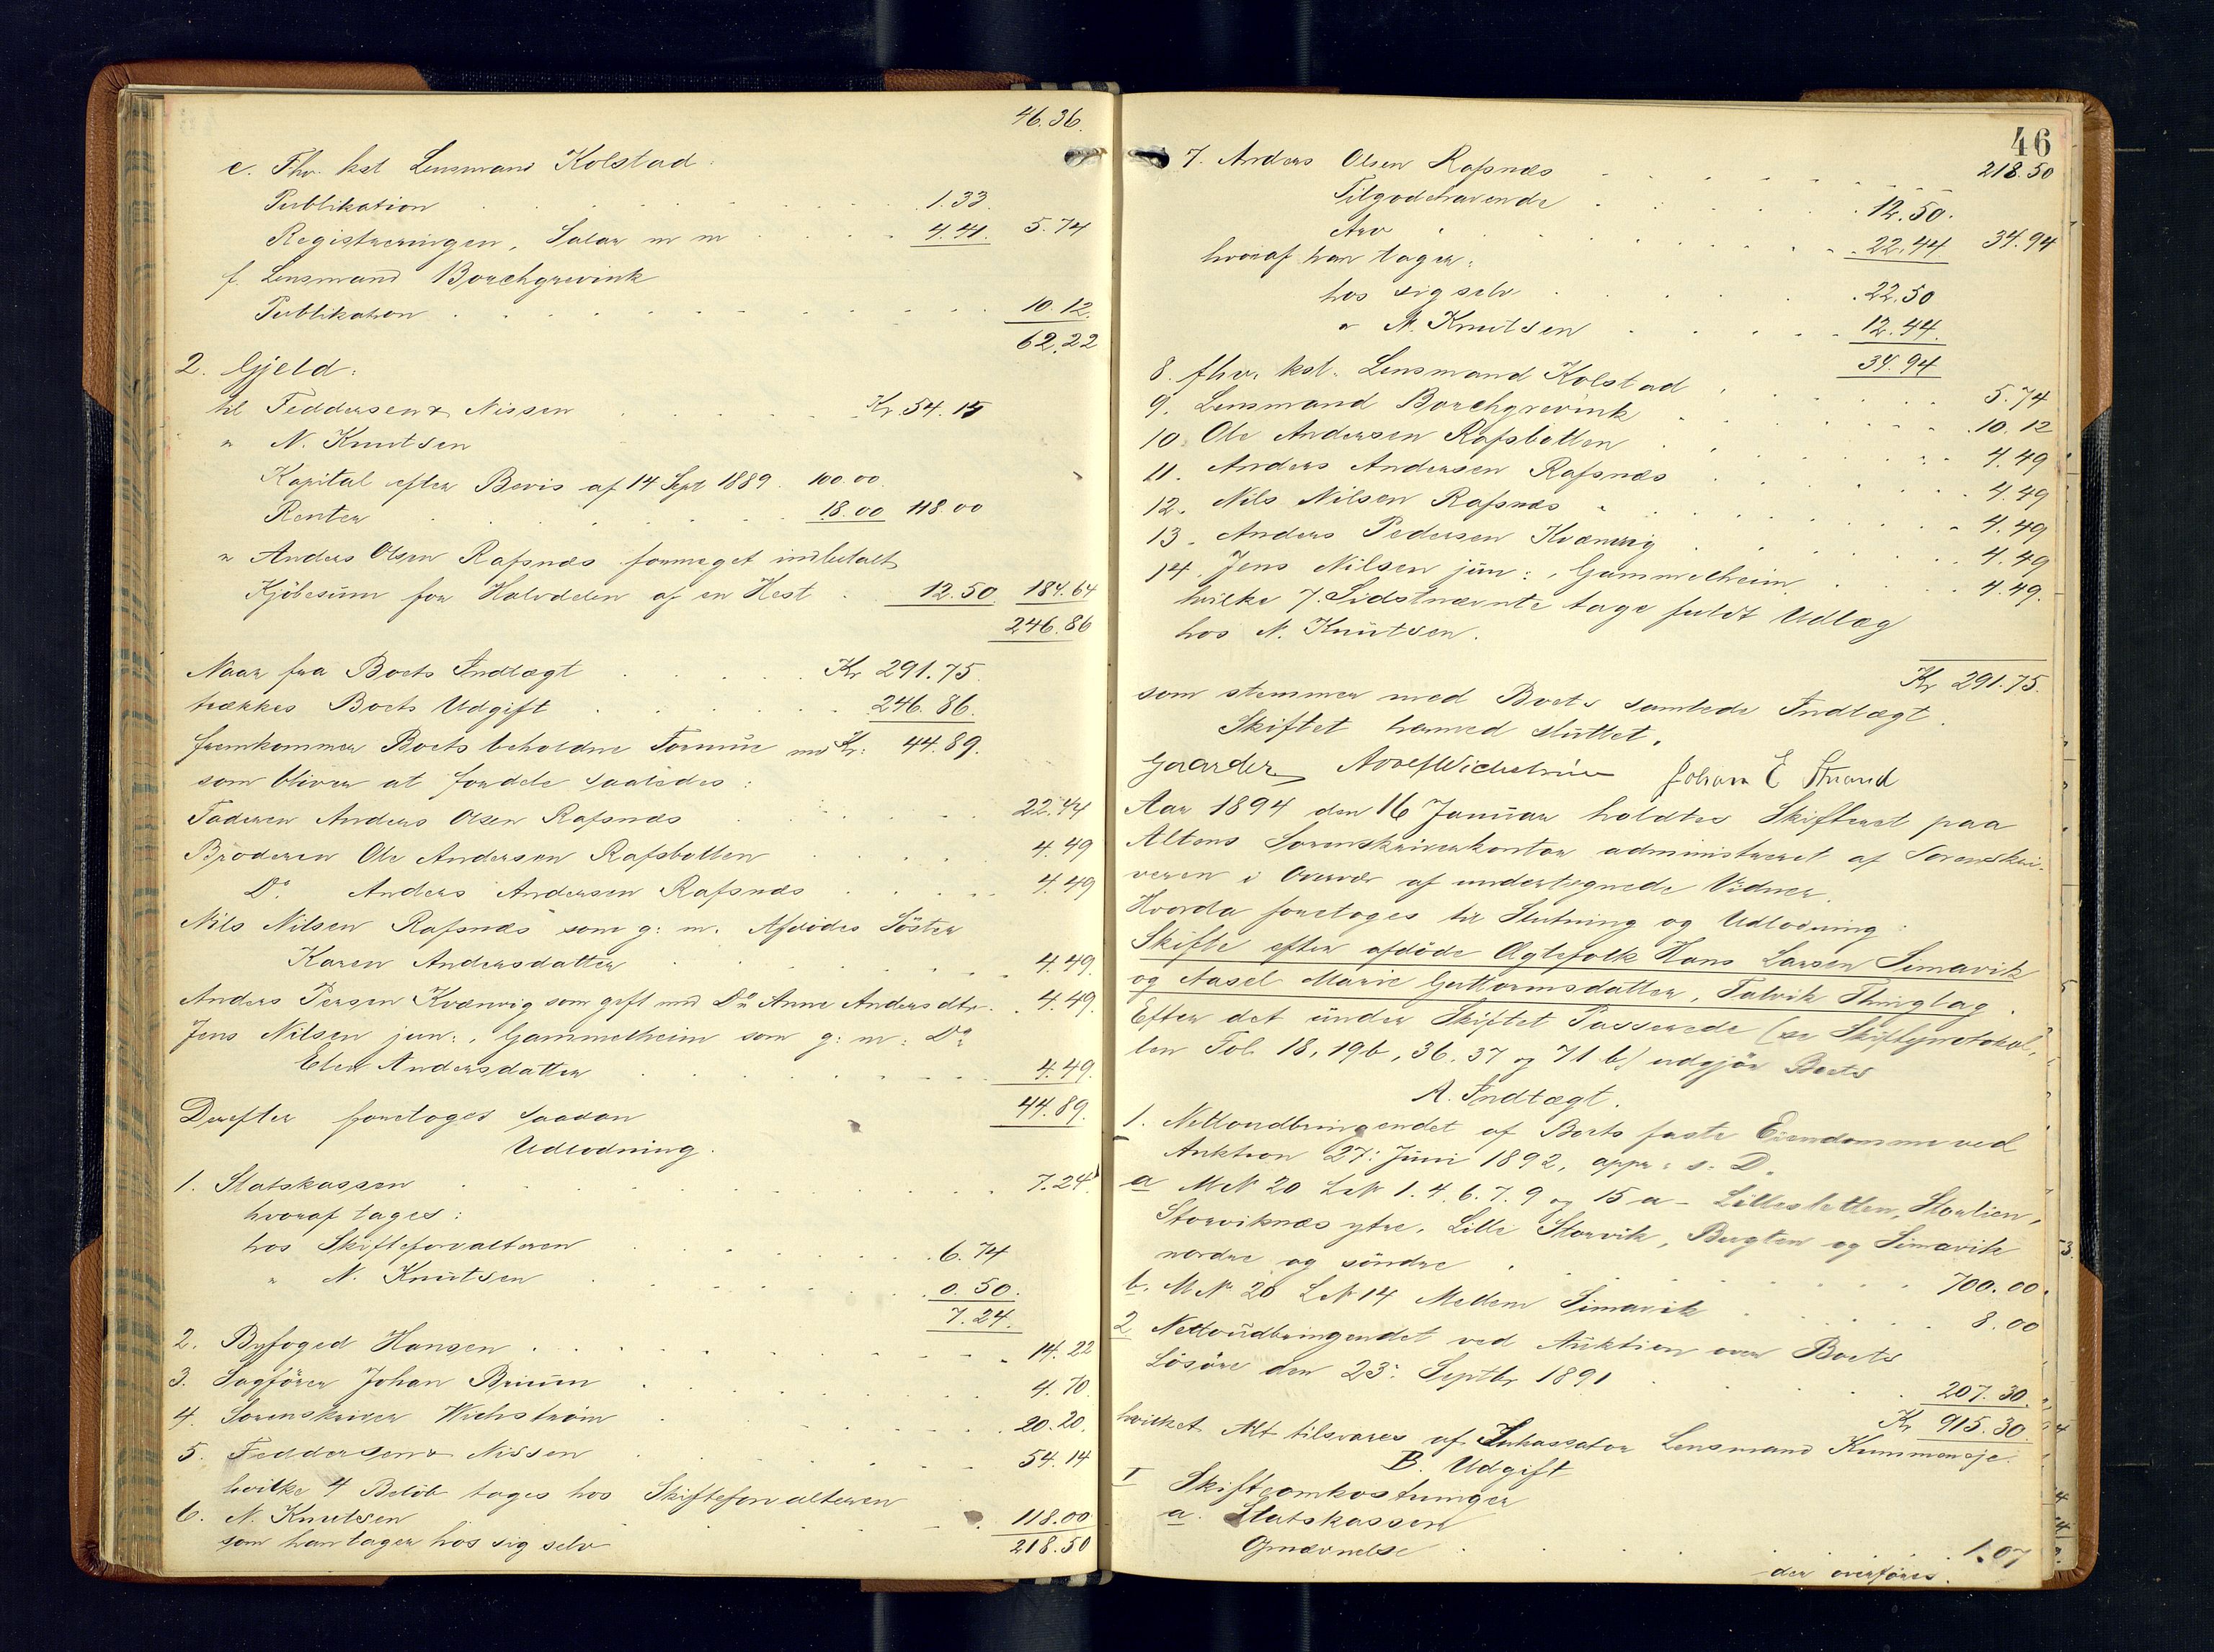 46.36.
e. Fhv. kst Lensmand Kolstad:
Publikation 1.33.
Registreringen, Salar m m 4.41. 5.74
f. Lensmand Borchgrevink
Publikation 10.12.
62.22
2. Gjeld:
til Feddersen & Nissen Kr. 54.14
" N. Knutsen
Kapital efter Bevis af 14 Sept 1889. 100.00.
Renter 18.00 118.00
" Anders Olsen Rafsnæs formeget indbetalt
Kjöbesum for Halvdelen af en Hest 12.50 184.64
246.86
Naar fra Boets Indtægt Kr 291.75.
trækkes Boets Udgift 246.86.
fremkommer Boets beholdne Formue med Kr: 44.89.
som bliver at fordele saaledes:
Faderen Anders Olsen Rafsnæs 22.44
Broderen Ole Andersen Rafsbotten 4.49
Do. Anders Andersen Rafsnæs 4.49
Nils Nilsen Rafsnæs som g: m. Afdödes Söster
Karen Andersdatter 4.49.
Anders Persen Kvænvig som gift med Do Anne Andersdtr. 4.49.
Jens Nilsen jun:, Gammelheim som g: m: Do
Elen Andersdatter 4.49.
44.89.
Derefter foretoges saadan
Udlodning.
1. Statskassen 7.24
hvoraf tages:
hos Skifteforvalteren 6.74
" N. Knutsen 0.50.
7.24.
2. Byfoged Hansen 14.22
3. Sagförer Johan Bruun 4.70.
4. Sorenskriver Wichström 20.20.
5. Feddersen & Nissen 54.14
hvilke 4 Belöb tages hos Skifteforvalteren
6. N. Knutsen 118.00
som han tager hos sig selv 218.50
46
218.50
7. Anders Olsen Rafsnæs
Tilgodehavende 12.50.
Arv 22.44 34.94
hvoraf han tager:
hos sig selv 22.50
" N. Knutsen 12.44.
34.94
8. fhv. kst. Lensmand Kolstad 5.74
9. Lensmand Borchgrevink 10.12
10. Ole Andersen Rafsbotten 4.49
11. Anders Andersen Rafsnæs 4.49
12. Nils Nilsen Rafsnæs 4.49
13. Anders Pedersen Kvænvig 4.49
14. Jens Nilsen jun:, Gammelheim 4.49.
hvilke 7 Sidstnævnte tage fuldt Udlæg
hos N. Knutsen.
Kr 291.75.
som stemmer med Boets samlede Indtægt.
Skiftet hermed sluttet.
Gaarder Johan E Strand
Aar 1894 den 16 Januar holdtes Skifteret paa
Altens Sorenskriverkontor administreret af Sorenskri-
veren i Overvær af undertegnede Vidner.
Hvorda foretoges til Slutning og Udlodning:
Skifte efter afdöde Ægtefolk Hans Larsen Simavik
og Aasel Marie Guttormsdatter, Talvik Thinglag.
Efter det under Skiftet Passerede (se Skifteprotokol-
len Fol. 18, 19b, 36. 37 og 71 b) udgjör Boets
A. Indtægt.
1. Nettoudbringendet af Boets faste Eiendomme ved
Auktion 27: Juni 1892, appr: s. D.
a M No 20 L No 1. 4. 6. 7. 9 og 15 a - Lillesletten, Storlien,
Storviknæs ytre, Lille Storvik, Bugten og Simavik
nordre og söndre 700.00.
b. M No 20 L No 14 Mellem Simavik 8.00
2 Nettoudbringendet ved Auktion over Boets
Lösöre den 23: Septbr 1891 207.30.
Kr 915.30
hvilket Alt tilsvares af Inkassator Lensmand Kummeneje.
B. Udgift
I Skifteomkostninger
a. Statskassen
Opnævnelse 1.07
der overföres.